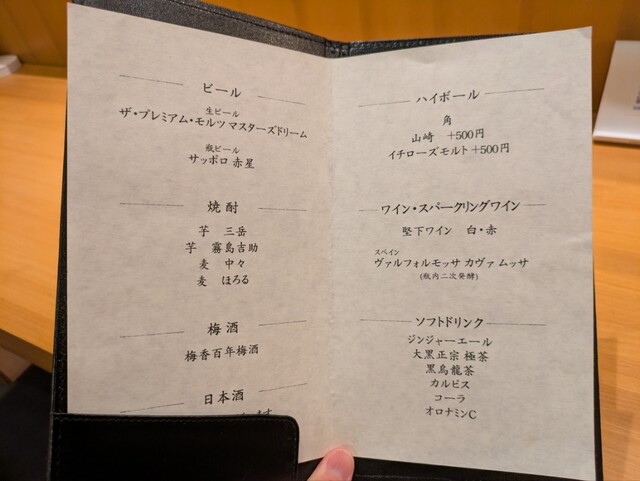 ビール
生ビール
ザ・プレミアム・モルツ マスターズドリーム
瓶ビール
サッポロ 赤星
焼酎
芋 三岳
芋 霧島吉助
麦 中々
麦 ほろる
梅酒
梅香百年梅酒
日本酒
ハイボール
角
山崎 +500円
イチローズモルト +500円
ワイン・スパークリングワイン
堅下ワイン 白・赤
スペイン
ヴァルフォルモッサ カヴァ ムッサ
(瓶内二次発酵)
ソフトドリンク
ジンジャーエール
大黒正宗 極茶
黒烏龍茶
カルピス
コーラ
オロナミンC